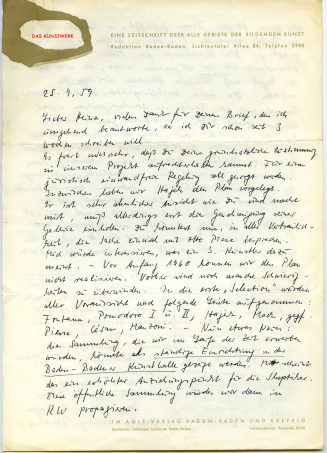 DAS KUNSTWERK
EINE ZEITSCHRIFT ÜBER ALLE GEBIETE DER BILDENDEN KUNST
Redaktion Baden-Baden, Lichtentaler Allee 84, Telefon
25. 9. 59
Lieber Heinz, vielen Dank für Deinen Brief, den ich
umgehend beantworte, da ich Dir schon seit 3
Wochen schreiben will.
Es freut mich sehr, daß Du Deine grundsätzliche Zustimmung
zu unserem Projekt aufrechterhalten kannst. Für eine
juristisch einwandfreie Regelung soll gesorgt werden.
Inzwischen haben wir Hajek den Plan vorgelegt.
Er ist sehr ähnlicher Ansicht wie Du und macht
mit, muß allerdings erst die Genehmigung seiner
Galerie einholen. Du könntest nun, in aller Vertraulich-
keit, die Sache einmal mit Otto Piene besprechen.
Mich würde interessieren, was ein 3. Künstler dazu
meint. - Vor Anfang 1960 können wir den Plan
nicht realisieren. Vorher sind noch manche Schwierig-
keiten zu überwinden. In die erste "Selection" werden
aller Voraussicht nach folgende Leute aufgenommen:
Fontana, Pomodoro I u. II, Hajek, Mack, ggf.
Piene, César, Manzoni. - Nun etwas Neues:
die Sammlung, die wir im Laufe der Zeit erwerben
würden, könnte als ständige Einrichtung in der
Baden-Badener Kunsthalle gezeigt werden. Mir scheint
das ein erhöhter Anziehungspunkt für die Skeptiker.
Diese öffentliche Sammlung würden wir dann im
KW propagieren.
IM AGIS-VERLAG BADEN-BADEN UND KREFELD